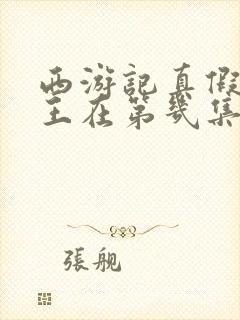 西游記真假
王在第幾集
張舰